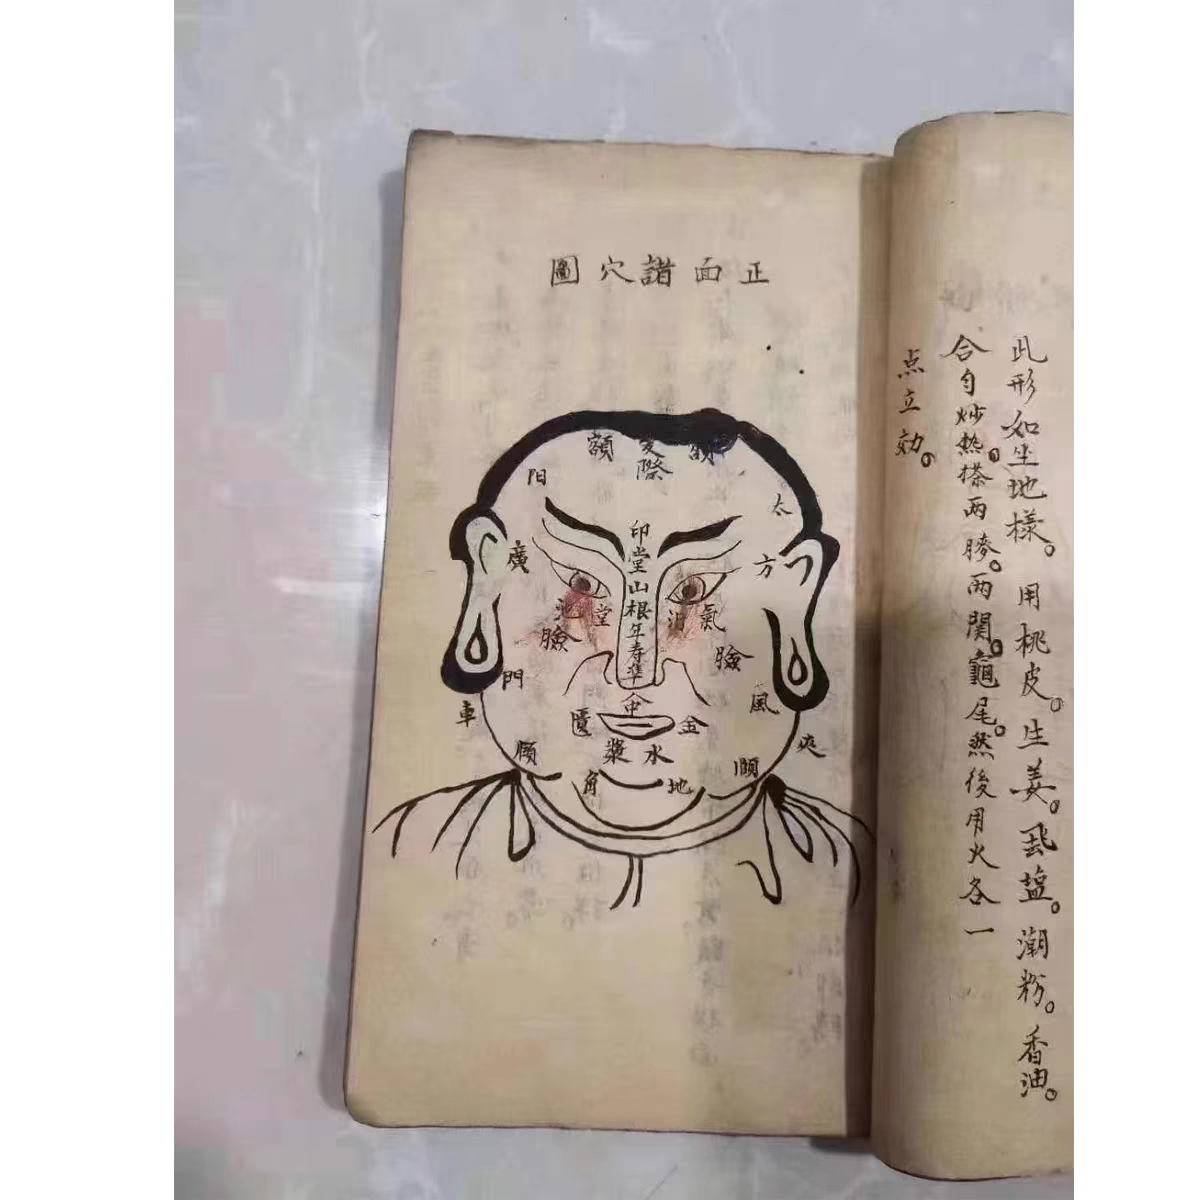 此形如坐地樣。用桃皮。生姜。飛塩。潮粉。香油。
合勻炒热。搽两膀。两関。龜尾。然後用火各一
点立効。
正面諸穴圖
額 髮際 額
阳
太
印堂山根年寿準
廣
方
池 堂
泪 氣
臉
臉
門
風
人中
匱
金
車
夾
漿 水
頤
頤
角 地